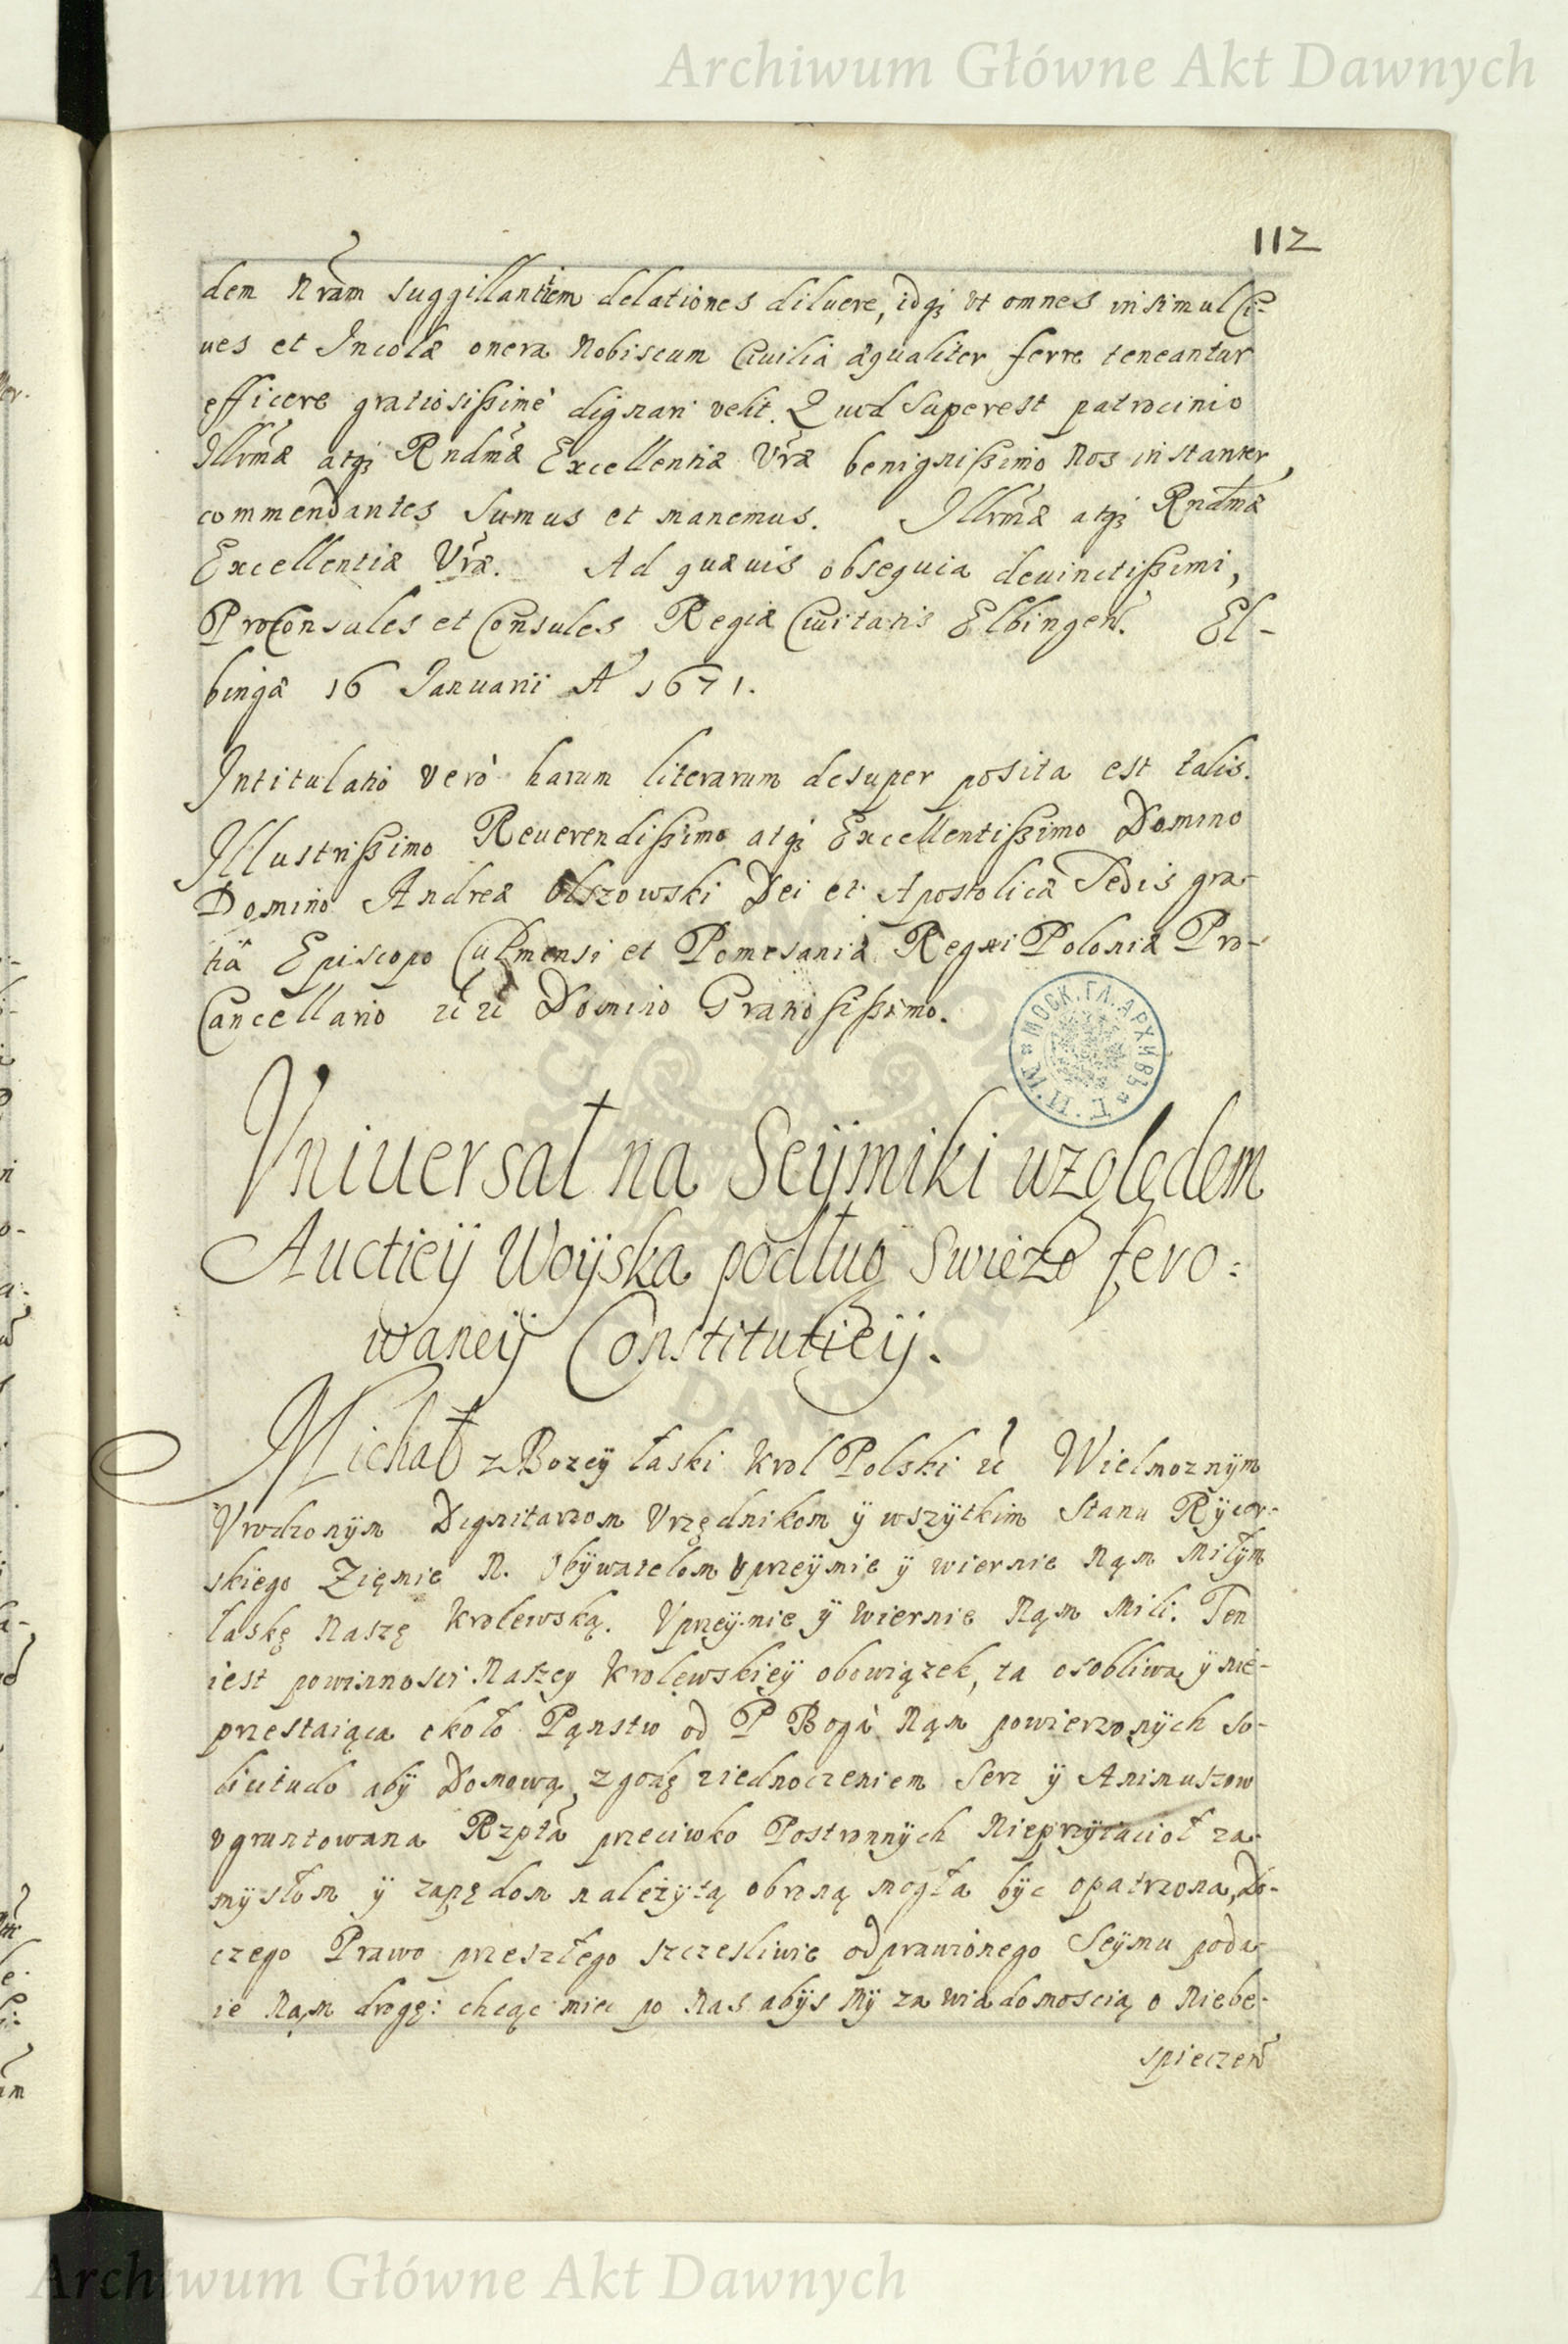 Archiwum Główne Akt Dawnych
112
dem nram suggillantem delationes diluere, idqꝫ vt omnes insimul Ci-
ues et Incolæ onera nobiscum Ciuilia æqualiter ferre teneantur
efficere gratiosissimè dignari velit. Quod Superest patrocinio
Illrmæ atqꝫ Rndmæ Excellentiæ Vræ benignissimo nos instanter
commendantes Sumus et manemus. Illrmæ atqꝫ Rndmæ
Excellentiæ Vræ. Ad quæuis obsequia deuinctissimi,
ProConsules et Consules Regiæ Ciuitatis Elbingen. El-
bingæ 16 Ianuarii A 1671.
Intitulatio verò harum literarum desuper posita est talis.
Illustrissimo Reuerendissimo atqꝫ Excellentissimo Domino
Domino Andreæ Olszowski Dei et Apostolicæ Sedis gra-
tiâ Episcopo Culmensi et Pomesaniæ Regni Poloniæ Pro-
Cancellario Domino Gratiosissimo.
Vniuersał na Seijmiki względem
Auctieij Woijska podług swiezo fero:
waneij Constitutieij.
Michał z Bozeÿ łaski Krol Polski Wielmoznÿm
Vrodzonÿm Dignitarzom Vrzędnikom ÿ wszÿtkim Stanu Rÿcer-
skiego Zięmie N. Obÿwatelom Vprzeÿmie ÿ wiernie Nąm Miłÿm
łaskę Naszę Krolewską. Vprzeÿmie ÿ Wiernie Nąm Mili. Ten
iest powinnosci Naszey Krolewskieÿ obowiązek, ta osobliwa ÿ nie-
przestaiąca około Pąnstw od P Boga Nąm powierzonÿch so-
licitudo abÿ Domową zgodę ziednoczeniem Serc ÿ Animuszow
vgruntowana Rzpta przeciwko Postronnÿch Nieprzÿiacioł za-
mÿsłom ÿ zapędom należÿtą obroną mogła bÿc opatrzona, Do-
czego Prawo przeszłego szczesliwie odprawionego Seÿmu poda-
ie Nąm drogę: chcąc miec po Nas abÿs mÿ za wiadomoscią o Niebe-
spieczen
МОСК. ГЛ. АРХИВЪ
ARCHIWUM
DAWNYCH
Archiwum Główne Akt Dawnych